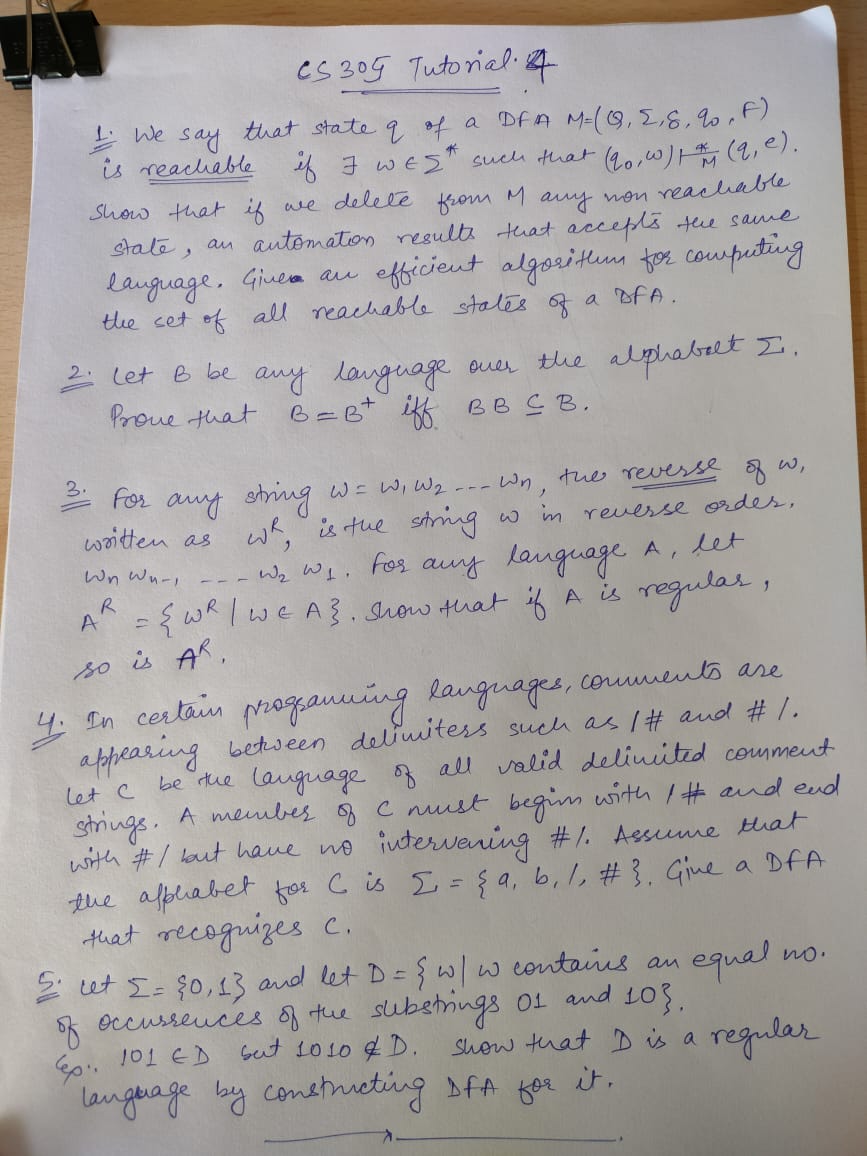 CS 305 Tutorial. 4
1. We say that state q of a DFA M=(Q, Σ, δ, q₀, F)
is reachable if ∃ w ∈ Σ* such that (q₀, w) ⊢*M (q, e).
Show that if we delete from M any non reachable
state, an automaton results that accepts the same
language. Give an efficient algorithm for computing
the set of all reachable states of a DFA.
2. Let B be any language over the alphabet Σ.
Prove that B = B⁺ iff BB ⊆ B.
3. For any string w = w₁ w₂ --- wn, the reverse of w,
written as wᴿ, is the string w in reverse order,
wn wn-1 --- w₂ w₁. For any language A, let
Aᴿ = { wᴿ | w ∈ A }. Show that if A is regular,
so is Aᴿ.
4. In certain programming languages, comments are
appearing between delimiters such as /# and #/.
Let C be the language of all valid delimited comment
strings. A member of C must begin with /# and end
with #/ but have no intervening #/. Assume that
the alphabet for C is Σ = { a, b, /, # }. Give a DFA
that recognizes C.
5. Let Σ = {0,1} and let D = { w | w contains an equal no.
of occurrences of the substrings 01 and 10}.
Ex:. 101 ∈ D but 1010 ∉ D. Show that D is a regular
language by constructing DFA for it.